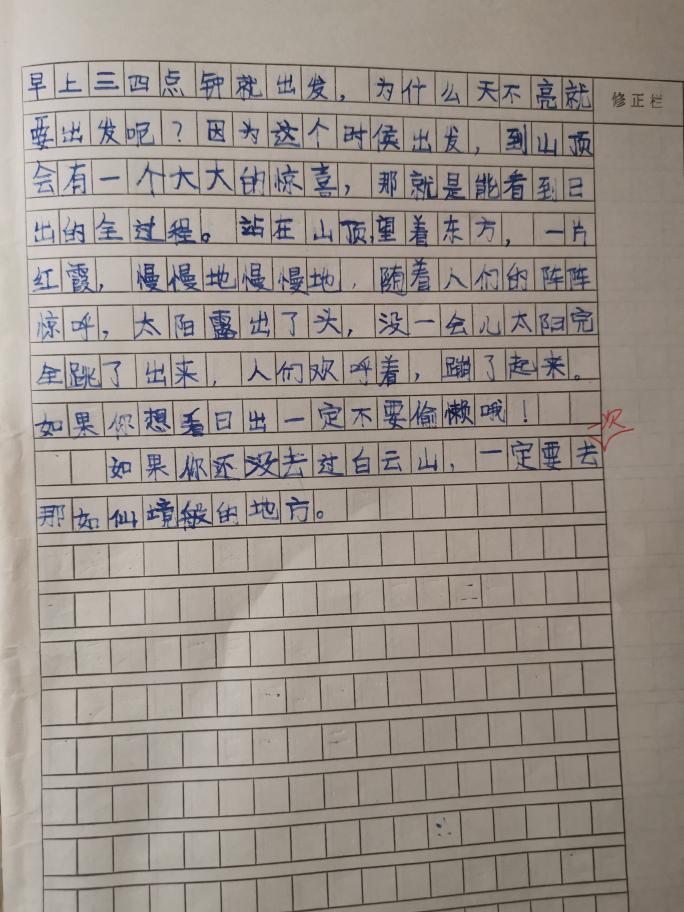 早上三四点钟就出发，为什么天不亮就
修正栏
要出发呢？因为这个时侯出发，到山顶
会有一个大大的惊喜，那就是能看到日
出的全过程。站在山顶，望着东方，一片
红霞，慢慢地慢慢地，随着人们的阵阵
惊呼，太阳露出了头，没一会儿太阳完
全跳了出来，人们欢呼着，蹦了起来。
如果你想看日出一定不要偷懒哦！
次
如果你还没去过白云山，一定要去
那如仙境般的地方。